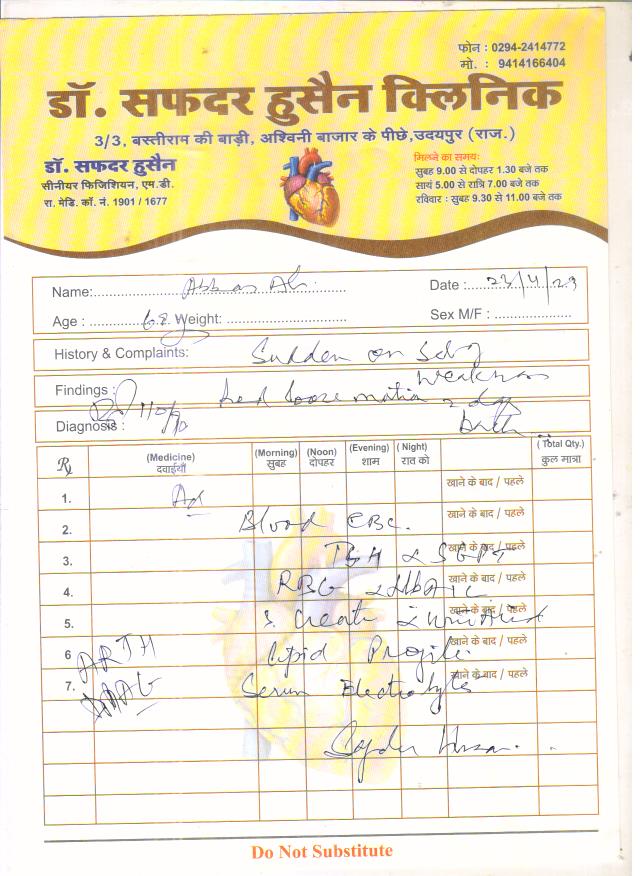 फोन : 0294-2414772
मो. : 9414166404
डॉ. सफदर हुसैन क्लिनिक
3/3, बस्तीराम की बाड़ी, अश्विनी बाजार के पीछे,उदयपुर (राज.)
डॉ. सफदर हुसैन
सीनीयर फिजिशियन, एम.डी.
रा. मेडि. कॉ. नं. 1901 / 1677
मिलने का समयः
सुबह 9.00 से दोपहर 1.30 बजे तक
सायं 5.00 से रात्रि 7.00 बजे तक
रविवार : सुबह 9.30 से 11.00 बजे तक
Name: Abbas Ali Date : 23/4/23
Age : 68 Weight: Sex M/F :
History & Complaints: Sudden on set of
weakness
Findings : had loose motion 2 days
Diagnosis : 110/70 back
Rx (Medicine) (Morning) (Noon) (Evening) (Night) (Total Qty.)
दवाईयाँ सुबह दोपहर शाम रात को कुल मात्रा
1. Ad खाने के बाद / पहले
2. Blood CBC. खाने के बाद / पहले
3. TSH & SGPT खाने के बाद / पहले
4. RBG & HbA1c खाने के बाद / पहले
5. S. Creati & खाने के बाद / पहले
6 Lipid Profile. खाने के बाद / पहले
7. Serum Electrolytes खाने के बाद / पहले
Do Not Substitute